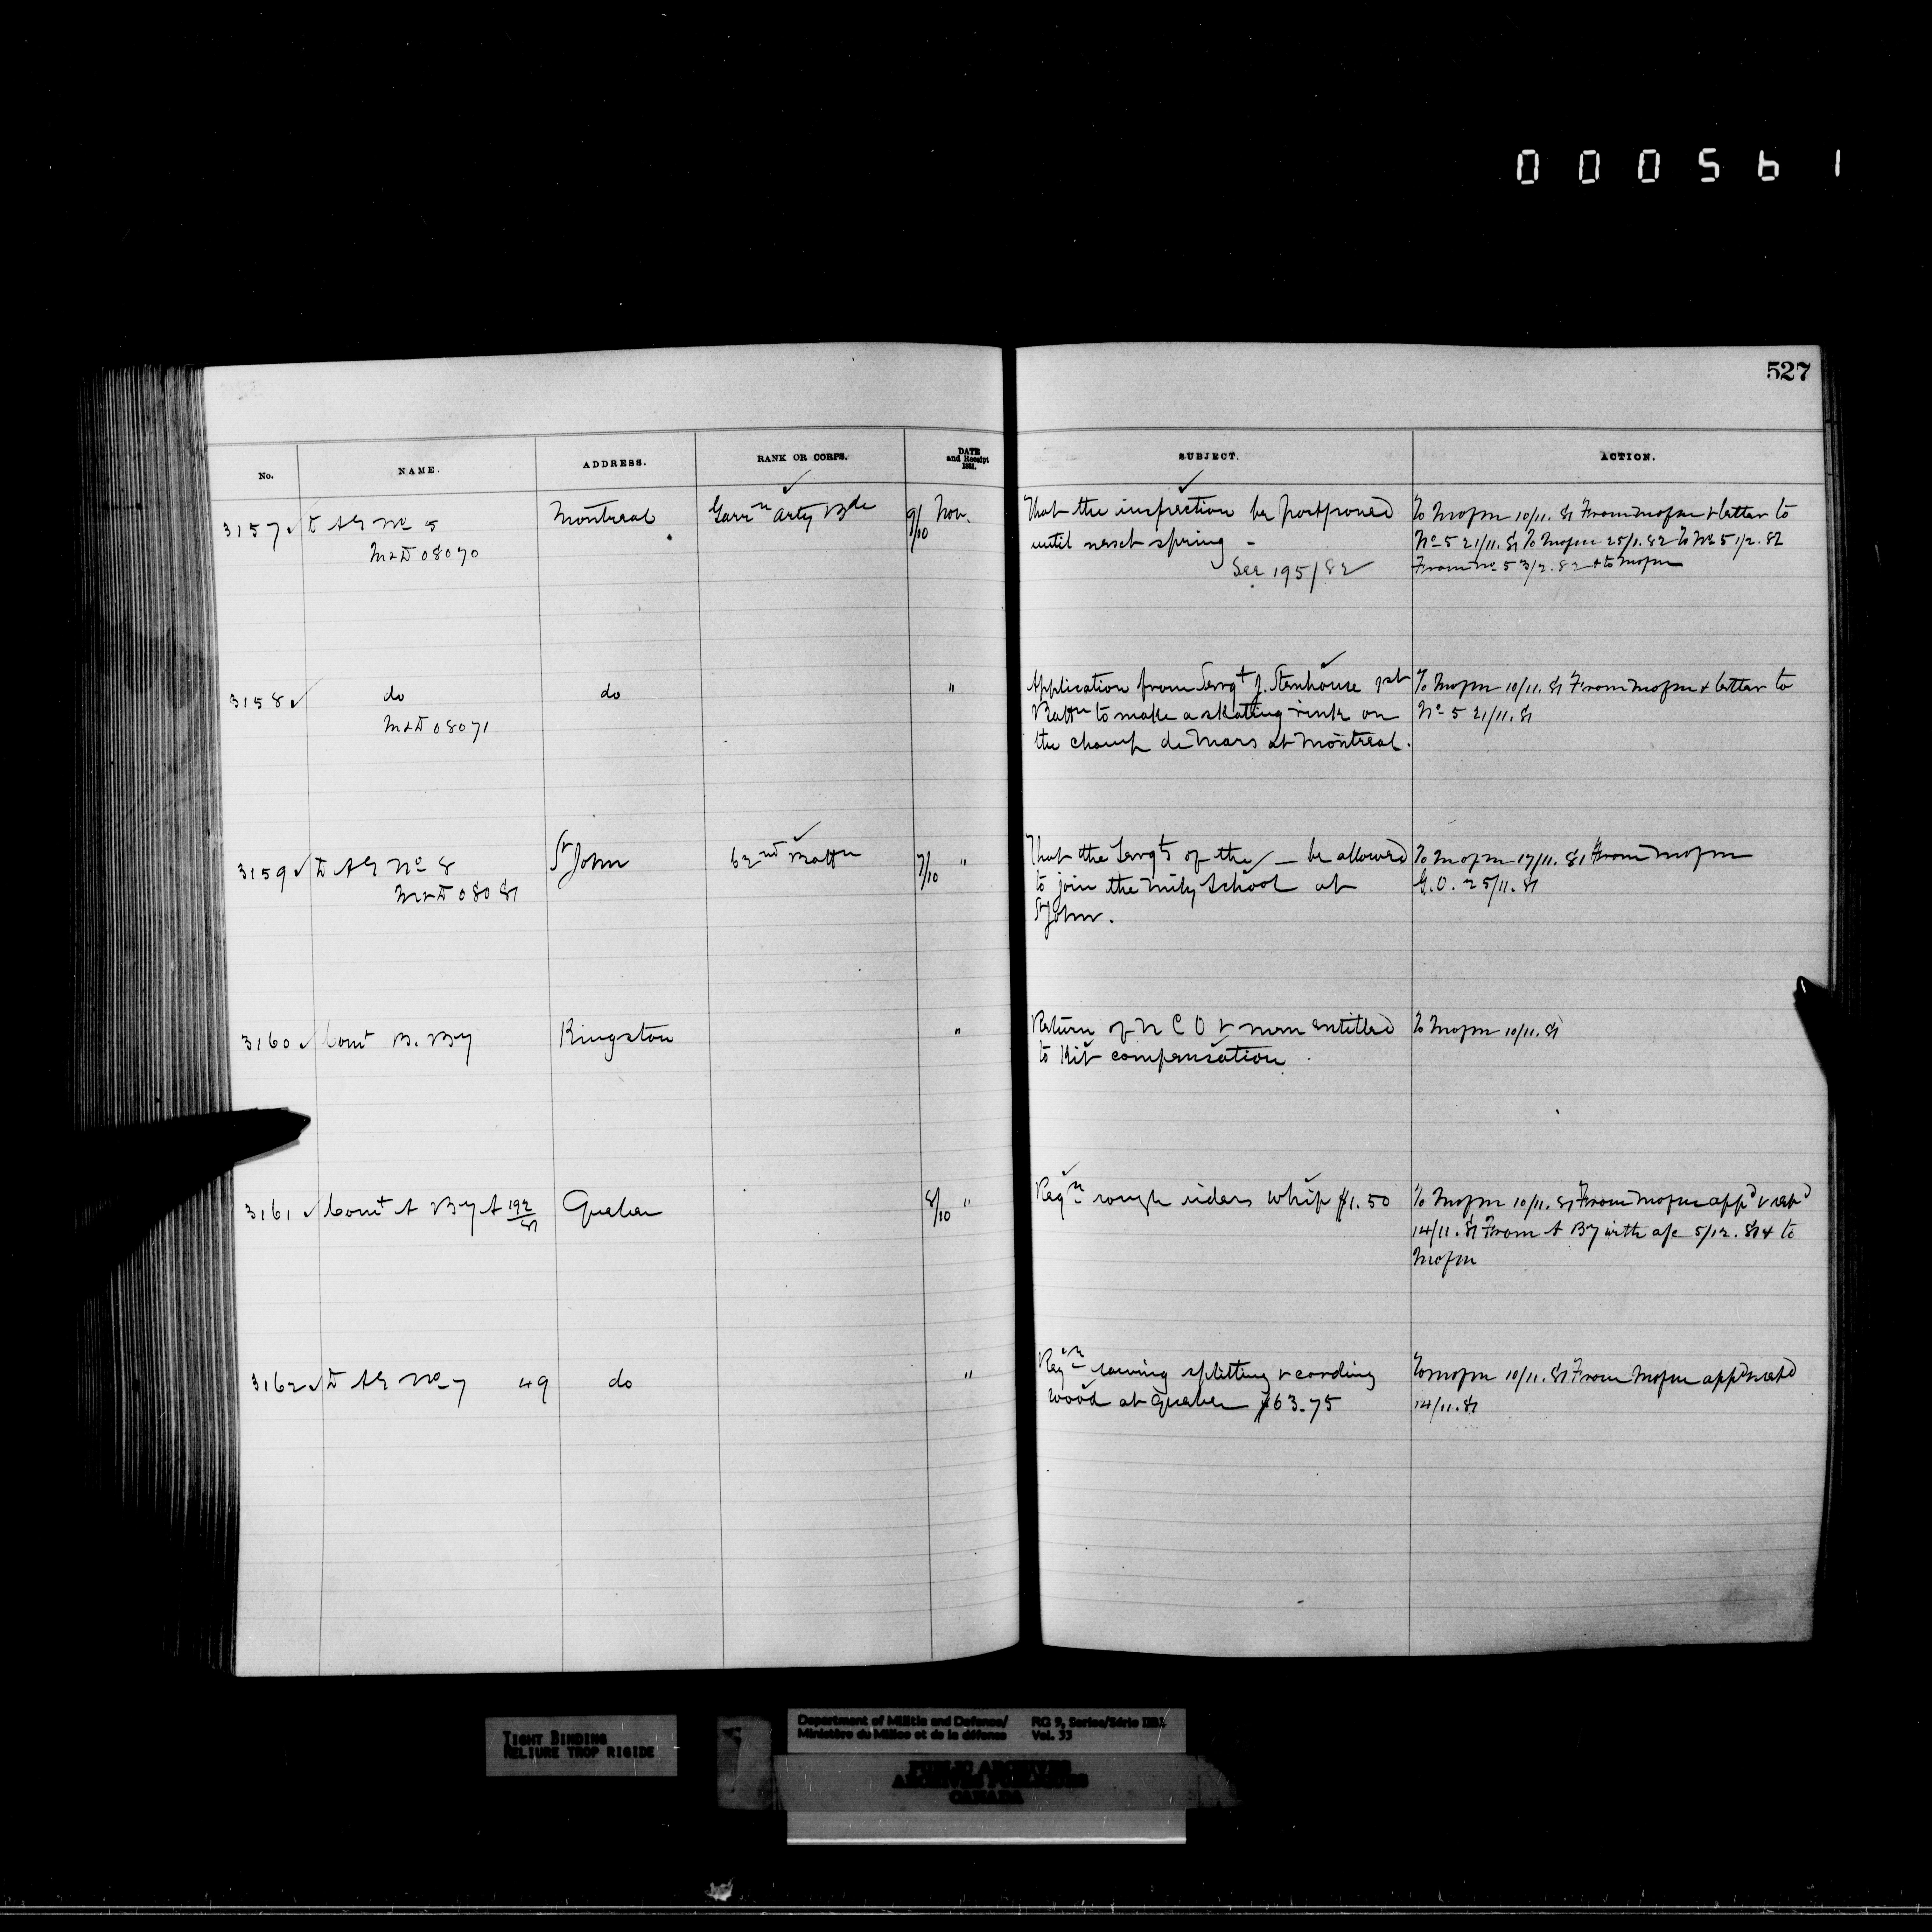 000561
527
No. NAME. ADDRESS. RANK OR CORPS. DATE and Receipt 1881. SUBJECT. ACTION.
3157 ✓ D A G No 5 Montreal Garrn Arty Bde 9/10 Nov. That the inspection be postponed To M of M 10/11.81 From M of M & letter to
M & D 08070 until next spring - No 5 21/11.81 To M of M 25/1.82 To No 5 1/2.82
See 195/82 From No 5 3/2.82 & to M of M
3158 ✓ do do " Application from Sergt J. Stenhouse 1st To M of M 10/11.81 From M of M & letter to
M & D 08071 Battn to make a skating rink on No 5 21/11.81
the Champ de Mars at Montreal.
3159 ✓ D A G No 8 St John 62nd Battn 7/10 " That the Sergts of the / — be allowed To M of M 17/11.81 From M of M
M & D 08081 to join the Mily School at G.O. 25/11.81
St John.
3160 ✓ Comt B. By Kingston " Return of N C O & men entitled To M of M 10/11.81
to Kit compensation.
3161 ✓ Comt A By A 192/81 Quebec 8/10 " Reqn rough riders whip $1.50 To M of M 10/11.81 From M of M appd & retd
14/11.81 From A By with a/c 5/12.81 & to
M of M
3162 ✓ D A G No 7 49 do " Reqn sawing splitting & cording To M of M 10/11.81 From M of M appd & retd
wood at Quebec $63.75 14/11.81
TIGHT BINDING
RELIURE TROP RIGIDE
Department of Militia and Defence/ RG 9, Series/Série IIB1,
Ministère du Milice et de la défense Vol. 33
PUBLIC ARCHIVES
ARCHIVES PUBLIQUES
CANADA